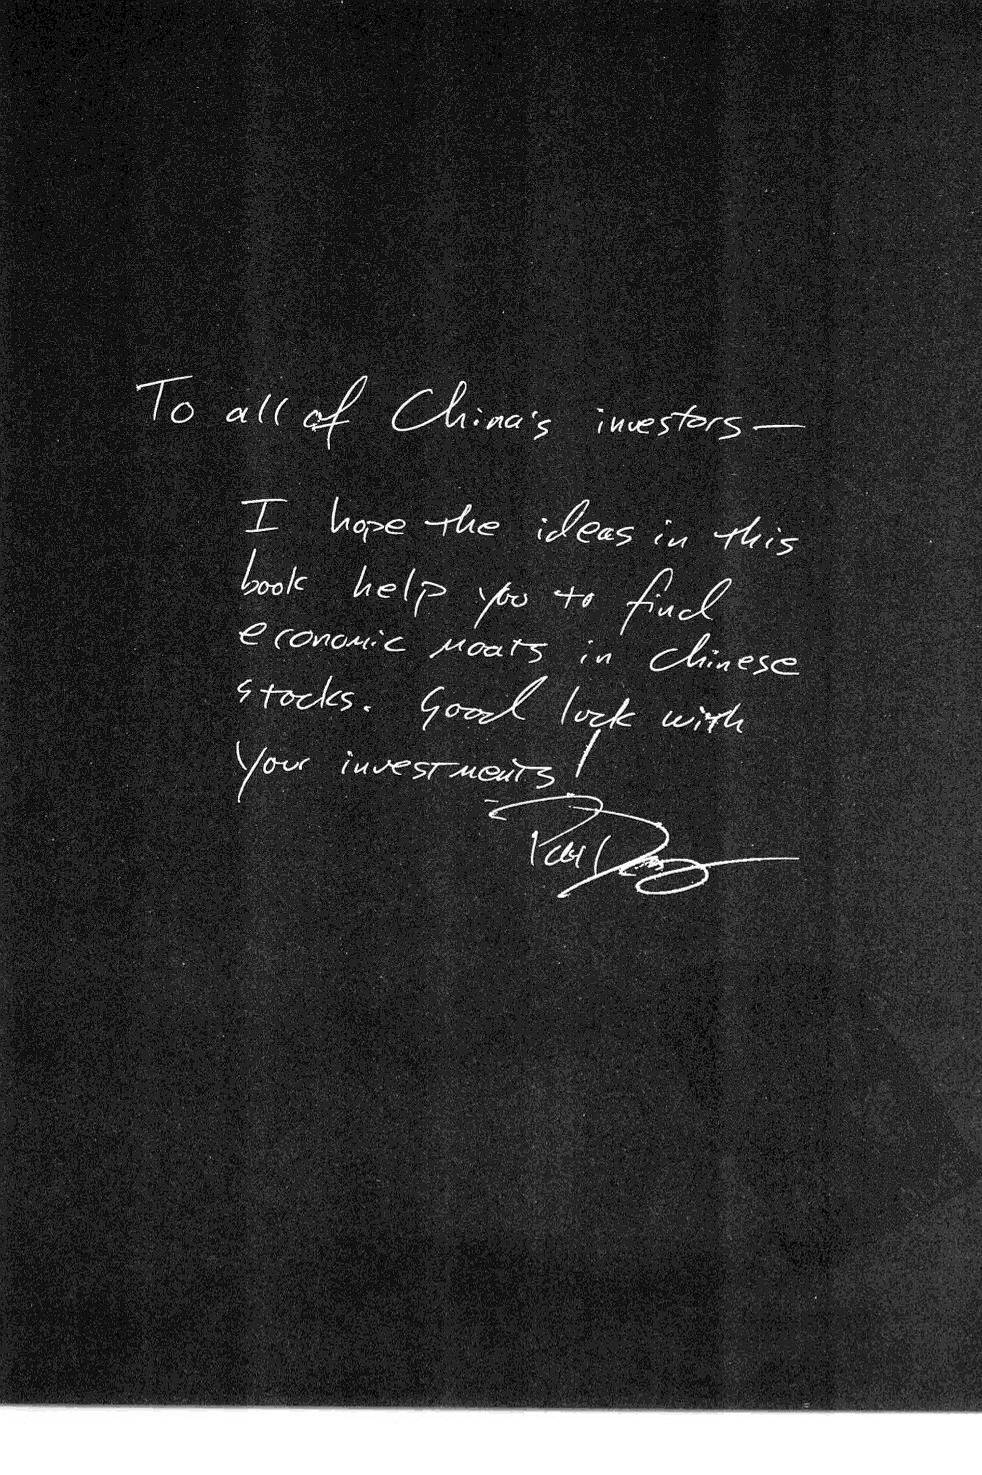 To all of China's investors—
I hope the ideas in this
book help you to find
economic moats in Chinese
stocks. Good luck with
your investments!
Pat Dorsey